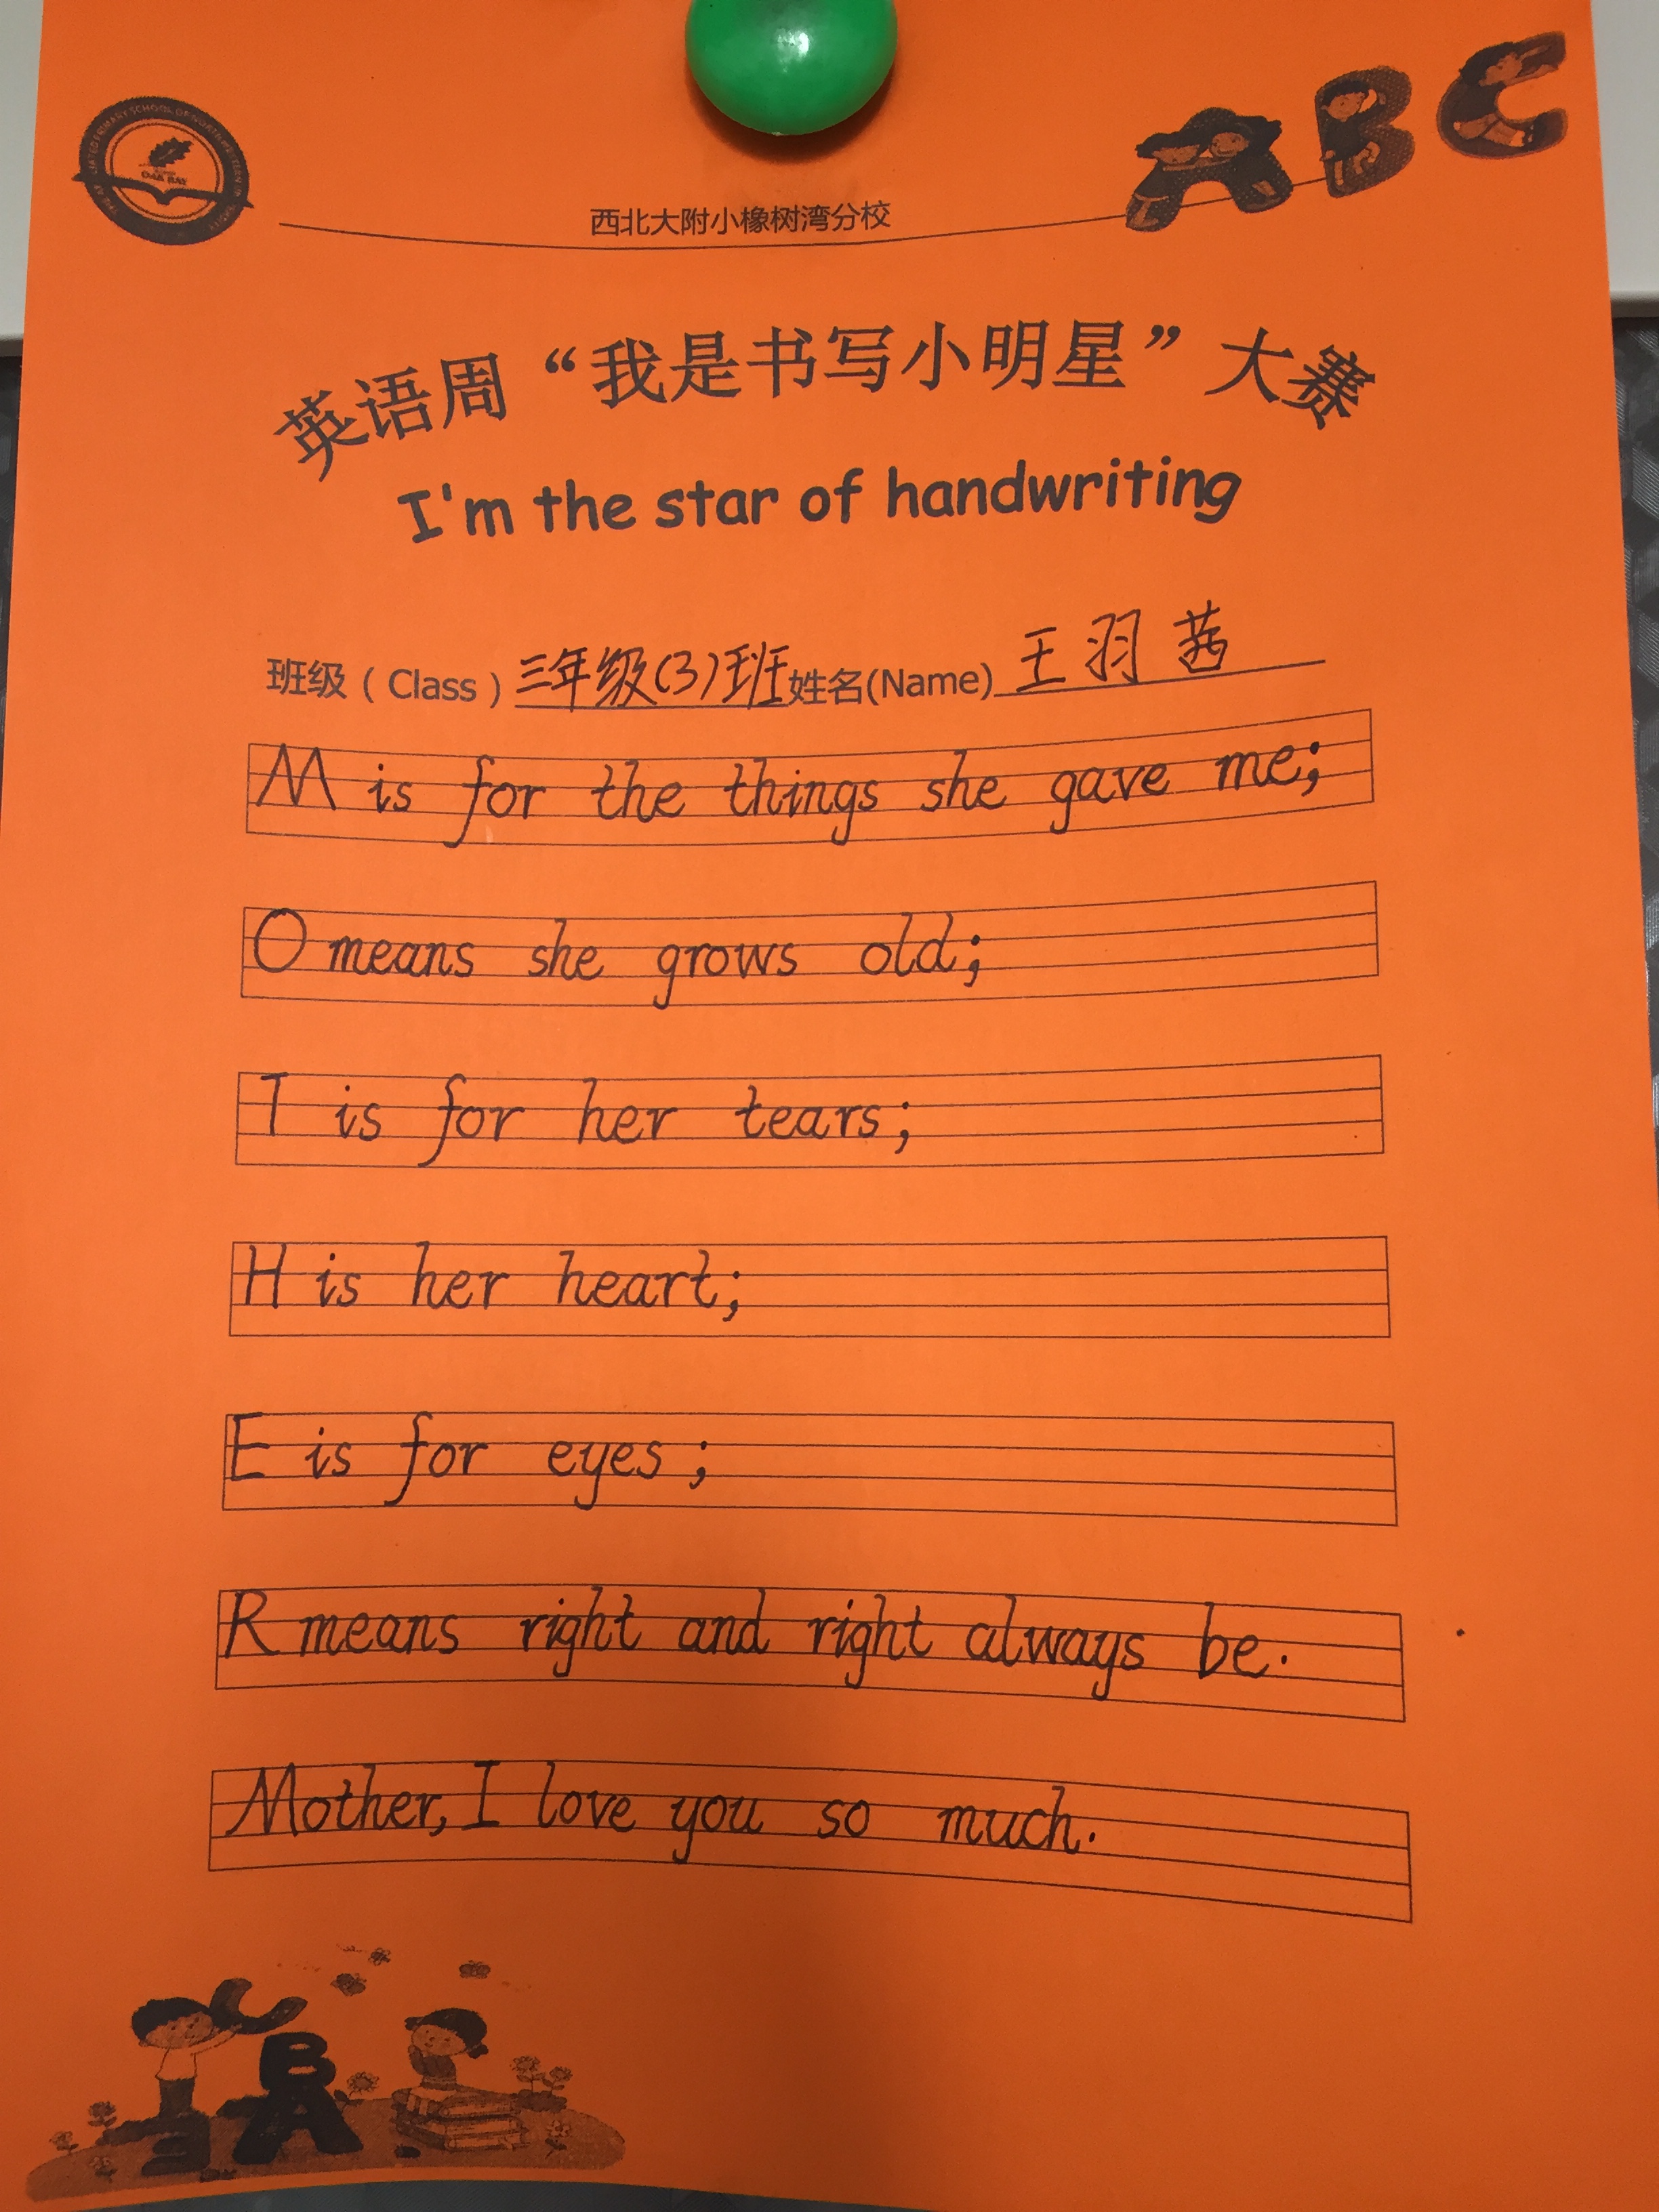 OAK BAY
ABC
西北大附小橡树湾分校
英语周“我是书写小明星”大赛
I'm the star of handwriting
班级（Class）三年级(3)班姓名(Name) 王羽茜
M is for the things she gave me;
O means she grows old;
T is for her tears;
H is her heart;
E is for eyes;
R means right and right always be.
Mother, I love you so much.